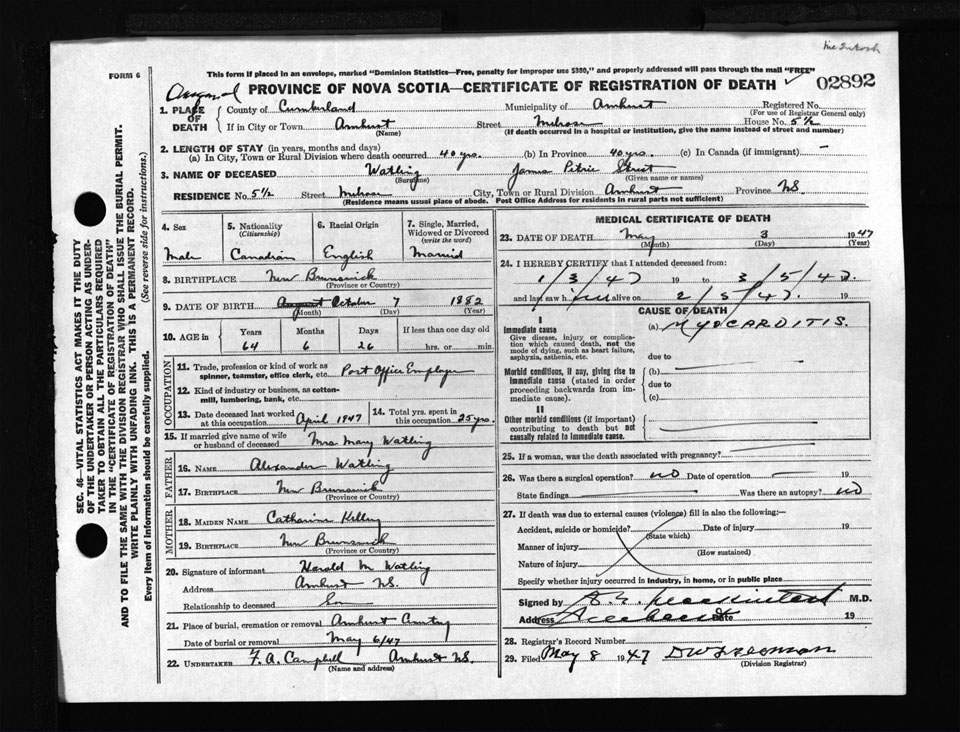 McIntosh
FORM 6
This form if placed in an envelope, marked "Dominion Statistics—Free, penalty for improper use $300," and properly addressed will pass through the mail "FREE"
PROVINCE OF NOVA SCOTIA—CERTIFICATE OF REGISTRATION OF DEATH
02892
1. PLACE OF DEATH
County of Cumberland Municipality of Amherst Registered No.
(For use of Registrar General only)
If in City or Town Amherst Street Melrose House No. 5½
(Name) (If death occurred in a hospital or institution, give the name instead of street and number)
2. LENGTH OF STAY (in years, months and days)
(a) In City, Town or Rural Division where death occurred 40 yrs. (b) In Province 40 yrs. (c) In Canada (if immigrant) —
3. NAME OF DECEASED Watling James Petrie Street
(Surname) (Given name or names)
RESIDENCE No. 5½ Street Melrose City, Town or Rural Division Amherst Province NS.
(Residence means usual place of abode. Post Office Address for residents in rural parts not sufficient)
4. Sex
Male
5. Nationality
(Citizenship)
Canadian
6. Racial Origin
English
7. Single, Married, Widowed or Divorced
(write the word)
Married
8. BIRTHPLACE New Brunswick
(Province or County)
9. DATE OF BIRTH August October 7 1882
(Month) (Day) (Year)
10. AGE in
Years Months Days If less than one day old
64 6 26 hrs. or min.
OCCUPATION
11. Trade, profession or kind of work as spinner, teamster, office clerk, etc. Post Office Employee
12. Kind of industry or business, as cotton-mill, lumbering, bank, etc.
13. Date deceased last worked at this occupation April 1947
14. Total yrs. spent in this occupation 25 yrs.
15. If married give name of wife or husband of deceased Mrs Mary Watling
FATHER
16. NAME Alexander Watling
17. BIRTHPLACE New Brunswick
(Province or Country)
MOTHER
18. MAIDEN NAME Catharine
19. BIRTHPLACE New Brunswick
(Province or Country)
20. Signature of informant Harold M Watling
Address Amherst NS.
Relationship to deceased Son
21. Place of burial, cremation or removal Amherst Cemetery
Date of burial or removal May 6/47
22. UNDERTAKER F. A. Campbell Amherst NS.
(Name and address)
MEDICAL CERTIFICATE OF DEATH
23. DATE OF DEATH May 3 1947
(Month) (Day) (Year)
24. I HEREBY CERTIFY that I attended deceased from:
1/3/47 19 to 3/5/47. 19
and last saw h im alive on 2/5/47. 19
CAUSE OF DEATH
I
Immediate cause
Give disease, injury or complication which caused death, not the mode of dying, such as heart failure, asphyxia, asthenia, etc.
(a) MYOCARDITIS.
due to
Morbid conditions, if any, giving rise to immediate cause (stated in order proceeding backwards from immediate cause).
(b)
due to
(c)
II
Other morbid conditions (if important) contributing to death but not causally related to immediate cause.
25. If a woman, was the death associated with pregnancy?
26. Was there a surgical operation? NO Date of operation 19
State findings Was there an autopsy? NO
27. If death was due to external causes (violence) fill in also the following:—
Accident, suicide or homicide? Date of injury 19
(State which)
Manner of injury
(How sustained)
Nature of injury
Specify whether injury occurred in industry, in home, or in public place
Signed by M.D.
Address Date 19
28. Registrar's Record Number
29. Filed May 8 1947
(Division Registrar)
SEC. 46—VITAL STATISTICS ACT MAKES IT THE DUTY
OF THE UNDERTAKER OR PERSON ACTING AS UNDER-
TAKER TO OBTAIN ALL THE PARTICULARS REQUIRED
IN THE "CERTIFICATE OF REGISTRATION OF DEATH"
AND TO FILE THE SAME WITH THE DIVISION REGISTRAR WHO SHALL ISSUE THE BURIAL PERMIT.
WRITE PLAINLY WITH UNFADING INK. THIS IS A PERMANENT RECORD.
Every item of information should be carefully supplied. (See reverse side for instructions.)